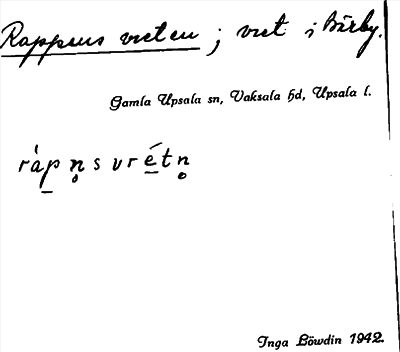 Rappens vreten ; vret i Bärby.
Gamla Upsala sn, Vaksala hd, Upsala l.
ràp̠n̥svré̠tn̥
Inga Löwdin 1942.